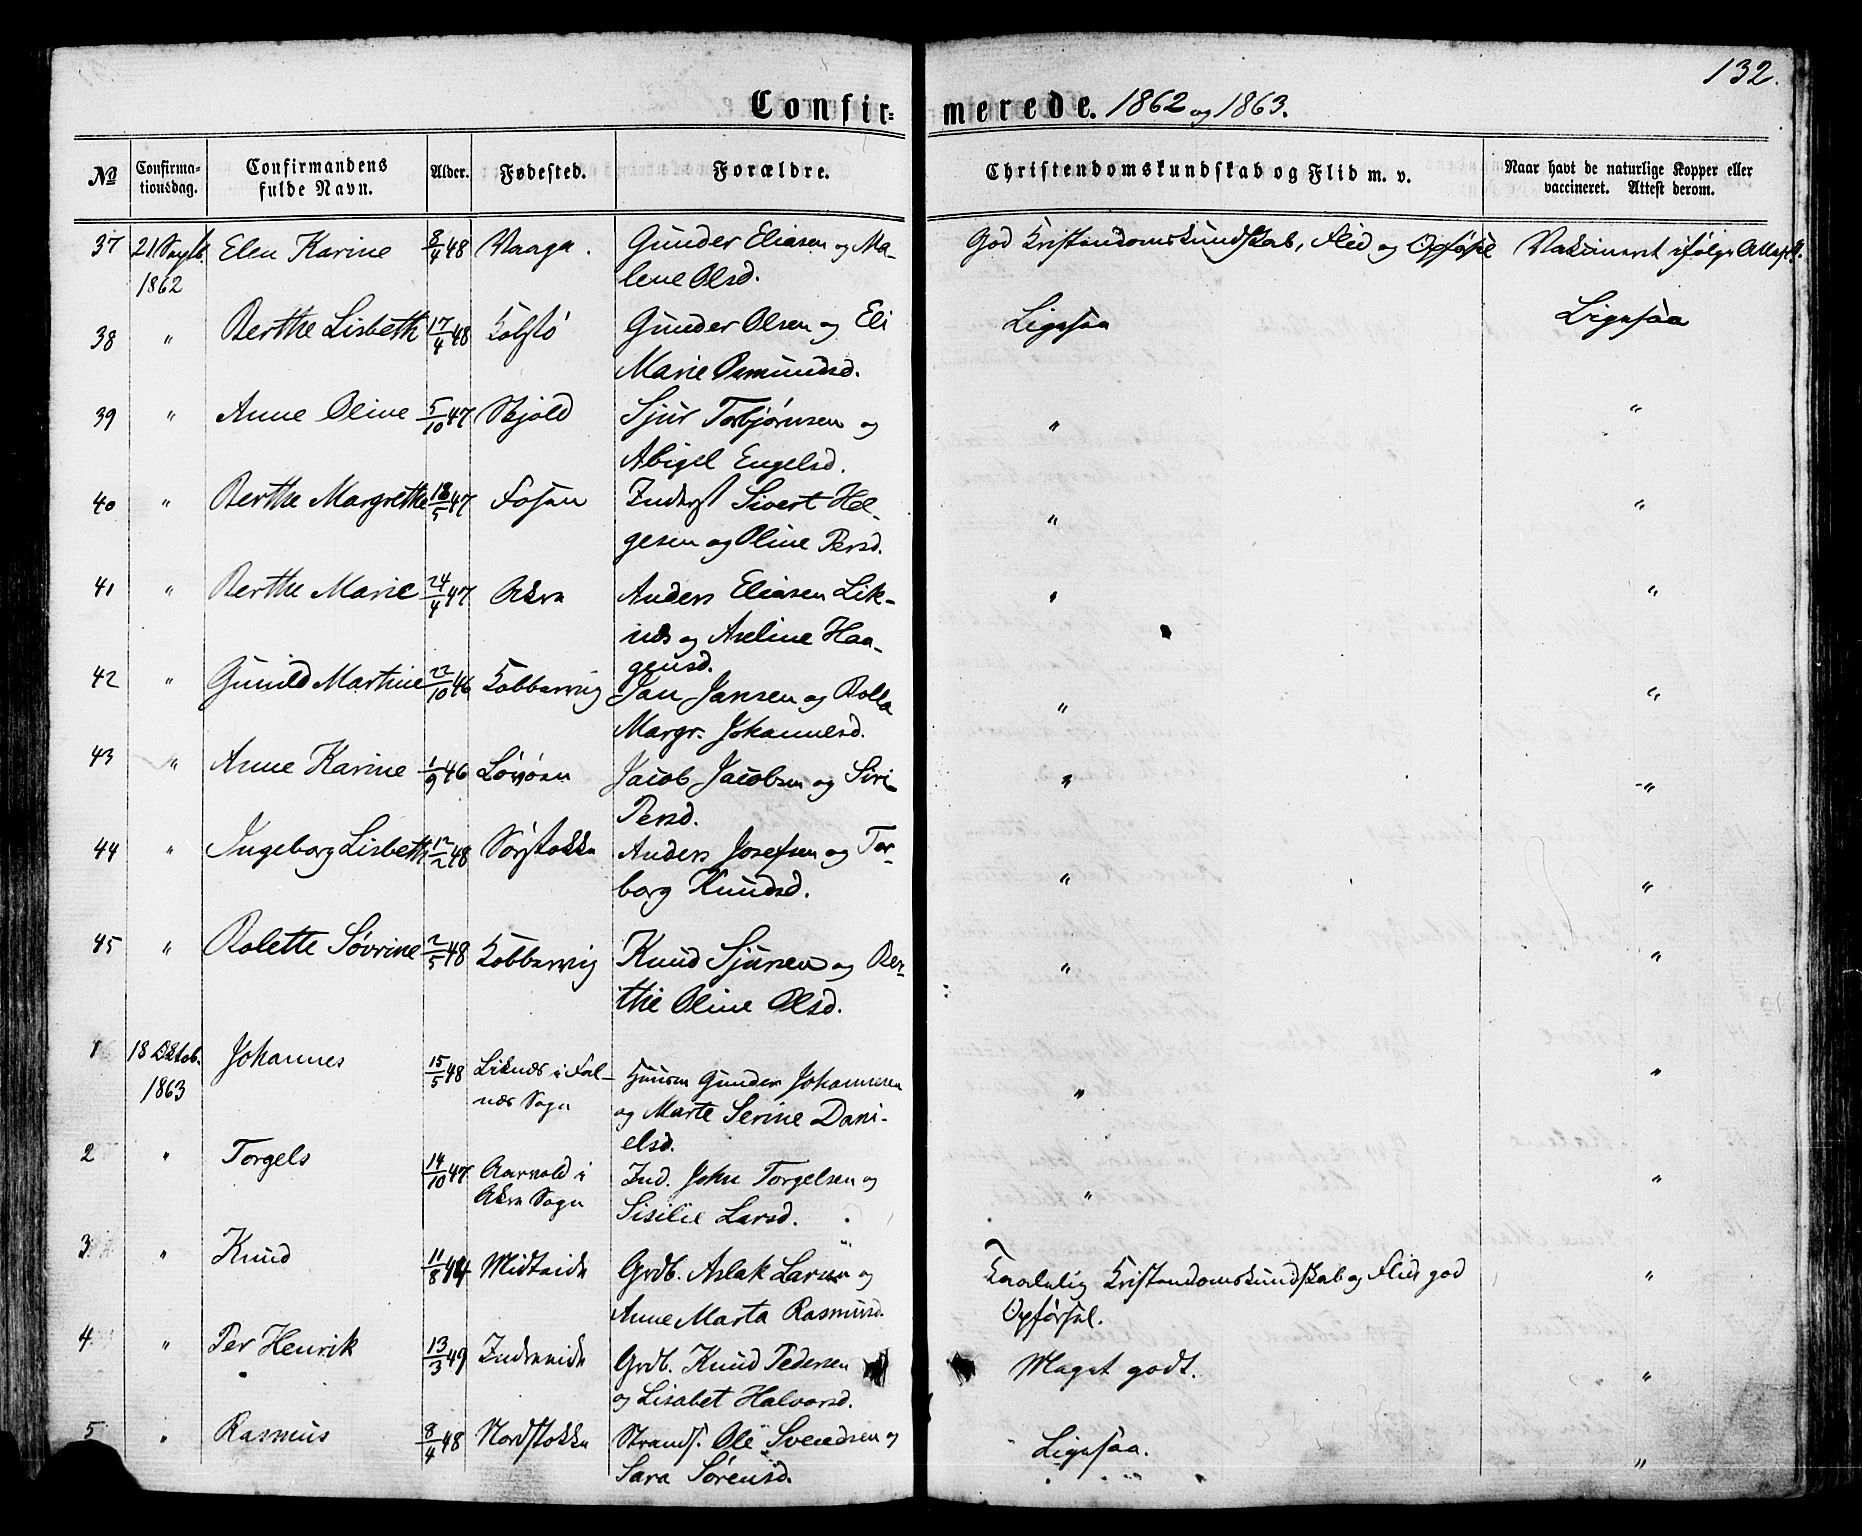 132.
Confir= merede. 1862 og 1863.
No Confirma-tionsdag. Confirmandens fulde Navn. Alder. Fødested. Forældre. Christendomskundskab og Flid m. v. Naar havt de naturlige Kopper eller vaccineret. Attest derom.
37 21 Septb. Elen Karine 8/4 48 Vaaga. Gunder Eliasen og Ma- God Kristendomskundskab, Flid og Opførsel Vakcineret ifølge Attest.
1862 lene Olsd.
38 " Berthe Lisbeth 17/4 48 Kolstø Gunder Olsen og Eli Ligesaa Ligesaa
Marie Osmundsd.
39 " Anne Oline 5/10 47 Skjold Sjur Torbjørnsen og " "
Abigel Engelsd.
40 " Berthe Margrethe 18/5 47 Fosen Inderst Sivert Hel- " "
gesen og Oline Persd.
41 " Berthe Marie 24/4 47 Akre Anders Eliasen Lik- " "
nes og Aseline Haa-
gensd.
42 " Gunild Martine 22/10 46 Kobbervig Jan Jansen og Bolla " "
Margr. Johannesd.
43 " Anne Karine 1/9 46 Løvøen Jacob Jacobsen og Siri " "
Persd.
44 " Ingeborg Lisbeth 12/2 48 Sørstokke Anders Josefsen og Tor- " "
borg Knudsd.
45 " Bolette Søvrine 2/5 48 Kobbervig Knud Sjursen og Ber- " "
the Oline Olsd.
1 18 Oktob. Johannes 15/5 48 Liknes i Fal- Huusm Gunder Johannesen " "
1863 nes Sogn og Marte Serine Dani-
elsd.
2 " Torgels 14/10 47 Aarvold i Ind. John Torgelsen og " "
Akre Sogn Sisilie Larsd.
3 " Knud 11/8 44 Midteide Grdb. Aslak Larsen og Taalelig Kristendomskundskab og Flid god "
Anne Marta Rasmusd. Opførsel.
4 " Per Henrik 13/3 49 Indreeide Grdb. Knud Pedersen Meget godt. "
og Lisabet Halvorsd.
5 " Rasmus 8/4 48 Nordstokke Strands. Ole Svendsen og Ligesaa. "
Sara Sørensd.